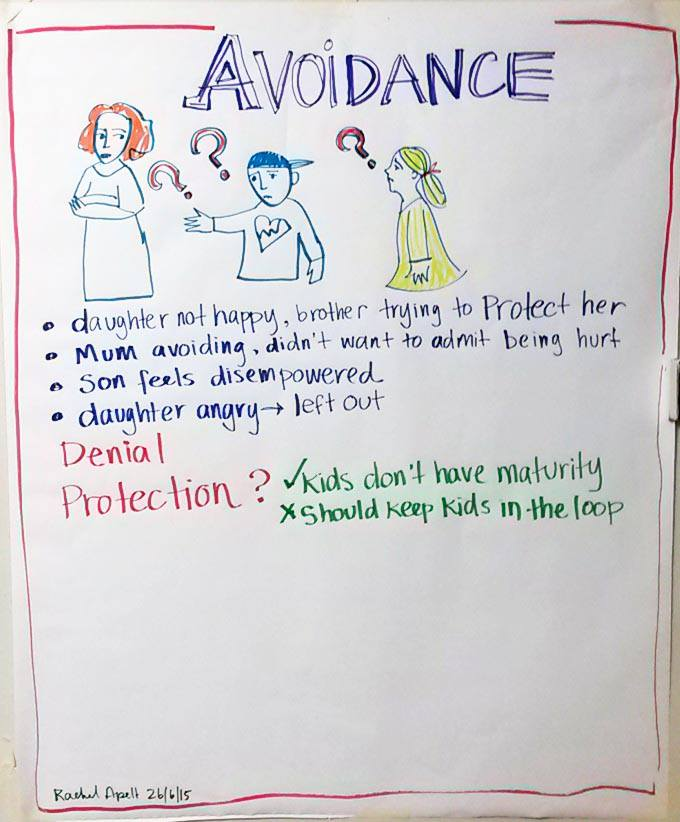 AVOiDANCE
? ? ?
• daughter not happy, brother trying to Protect her
• Mum avoiding, didn't want to admit being hurt
• Son feels disempowered
• daughter angry → left out
Denial
Protection ? ✓kids don't have maturity
x should keep kids in the loop
Rachel Apelt 26/6/15